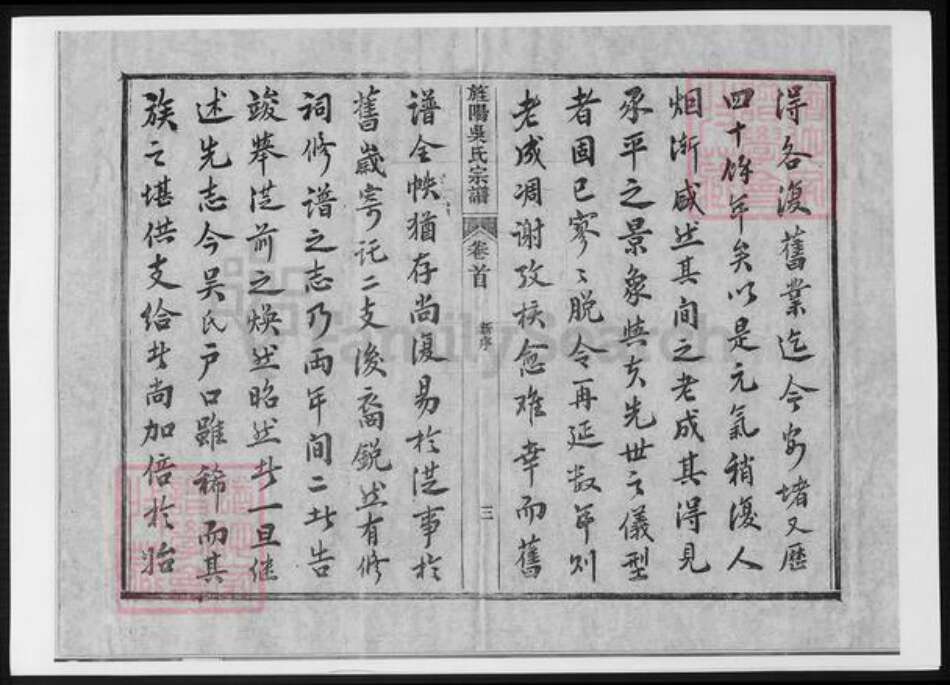 得各復舊業迄今安堵又歷
四十餘年矣以是元氣稍復人
烟漸盛然其間之老成其得見
承平之景象與夫先世之儀型
者固已寥〻脫令再延数年則
老成凋謝攷核愈難幸而舊
旌陽吳氏宗譜 卷首 新序 三
譜全帙猶存尚復易於從事於
舊歲寄託二支後裔銳然有修
祠修譜之志乃兩年間二者告
竣舉從前之煥然昭然者一旦继
述先志今吳氏戶口雖稀而其
族之堪供支給者尚加倍於貽
FamilySearch